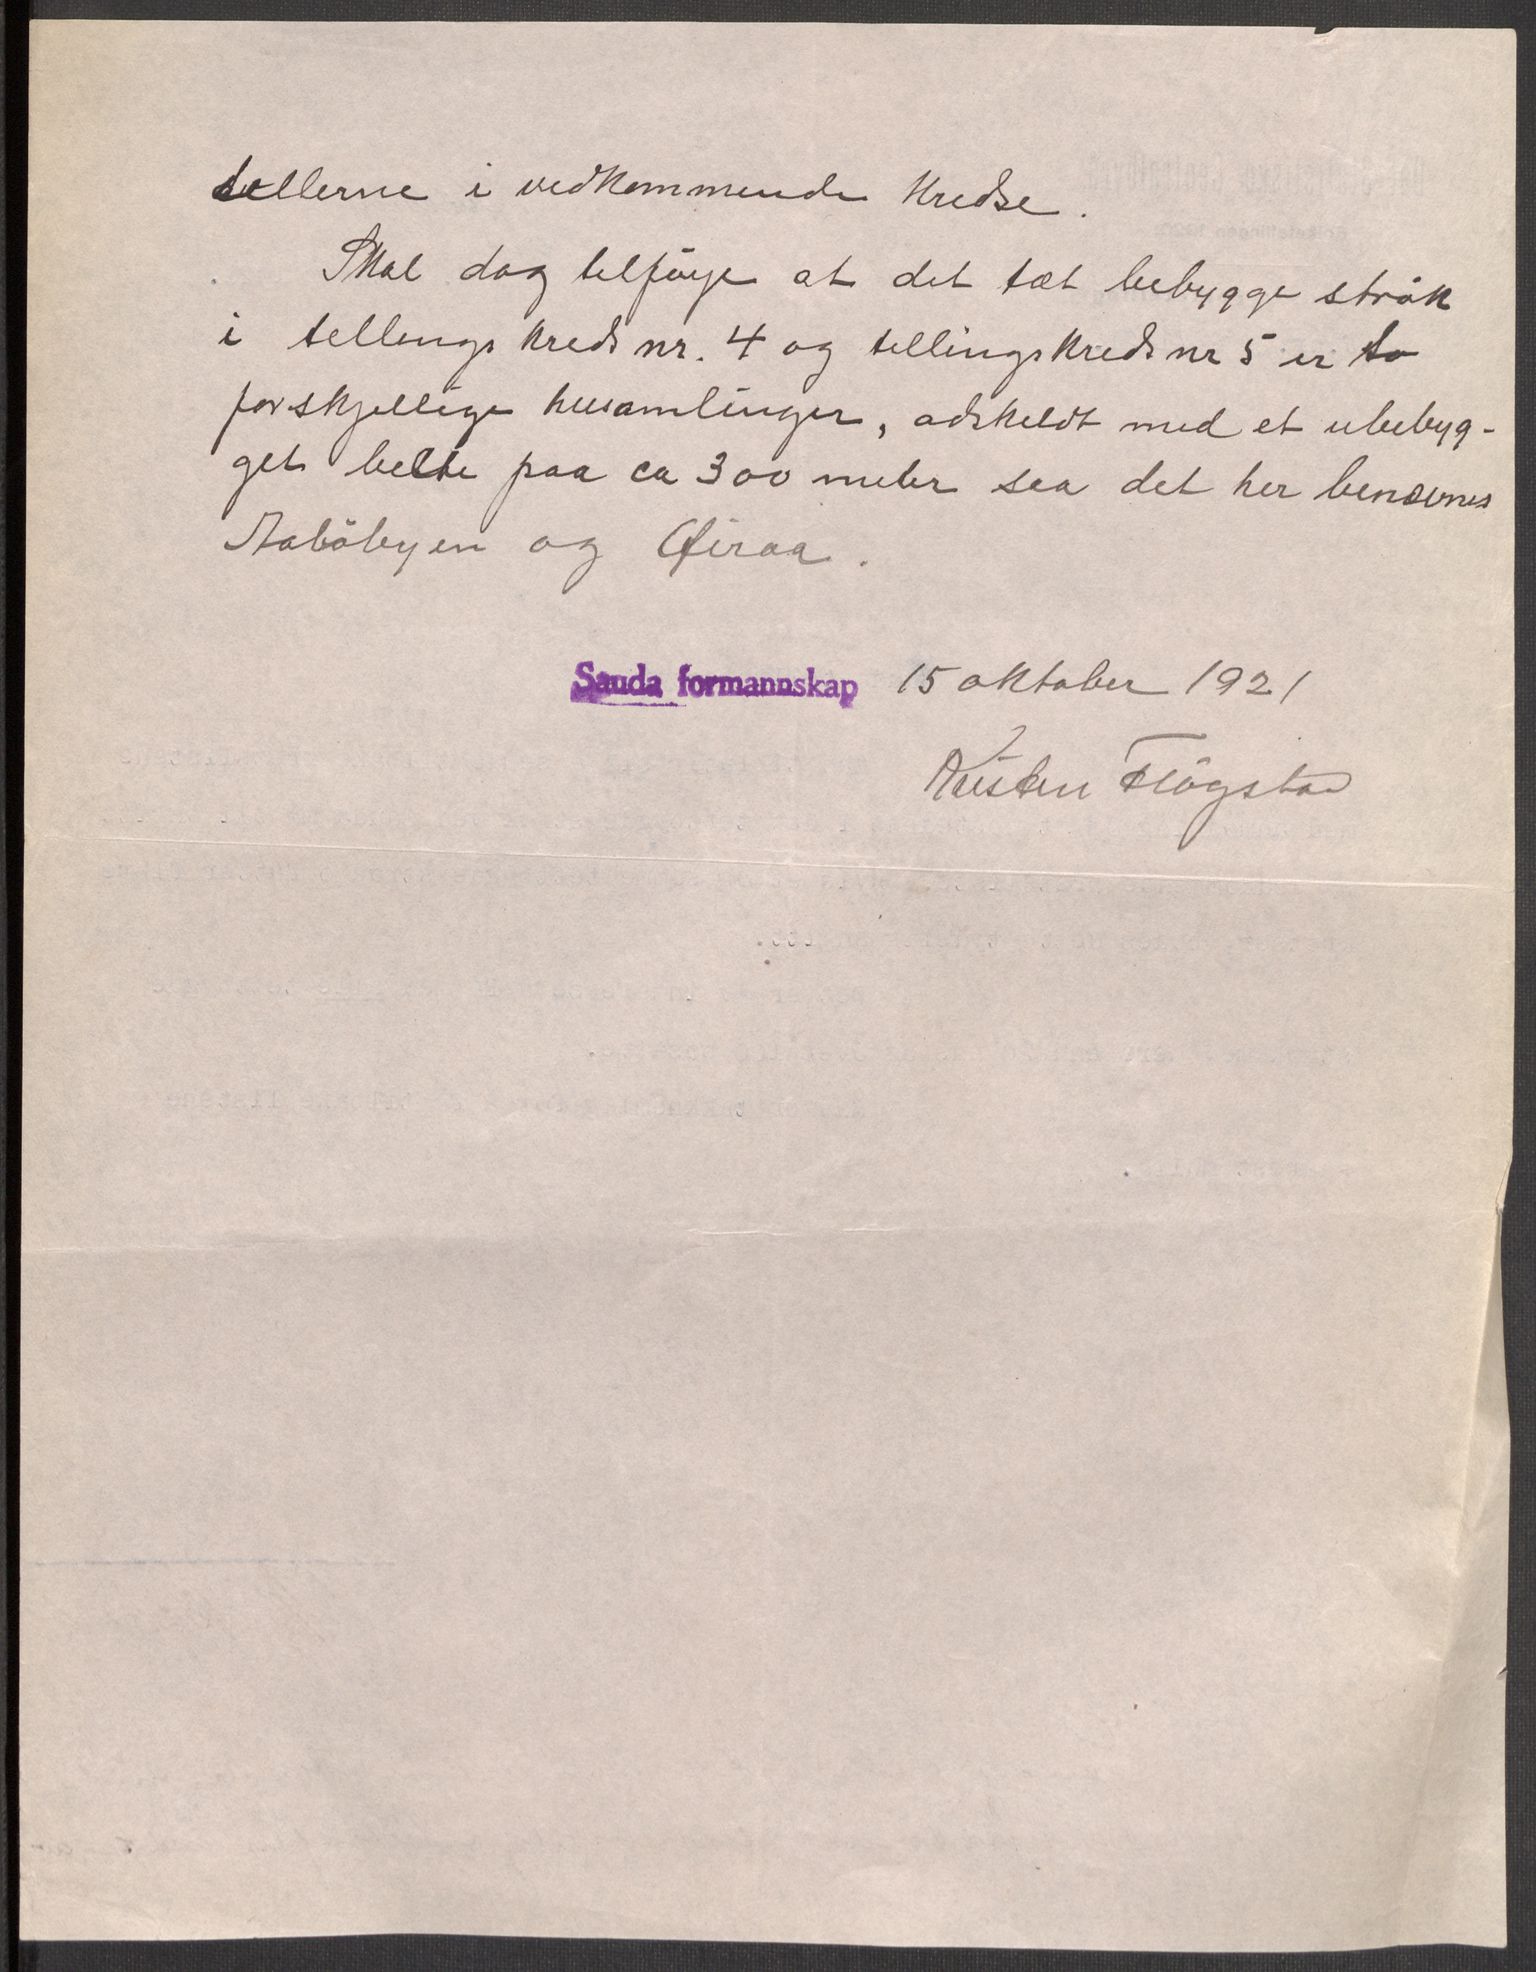 tellerne i vedkommende kredse.
Skal dog tilföye at det tæt bebygge strök
i tellings kreds nr. 4 og tellingskreds nr 5 er to
forskjellige husamlinger, adskeldt med et ubebyg-
get belte paa ca 300 meter saa det her benævnes
Aaböbyen og Øiraa.
Sauda formannskap 15 oktober 1921
Kristen Flögstad